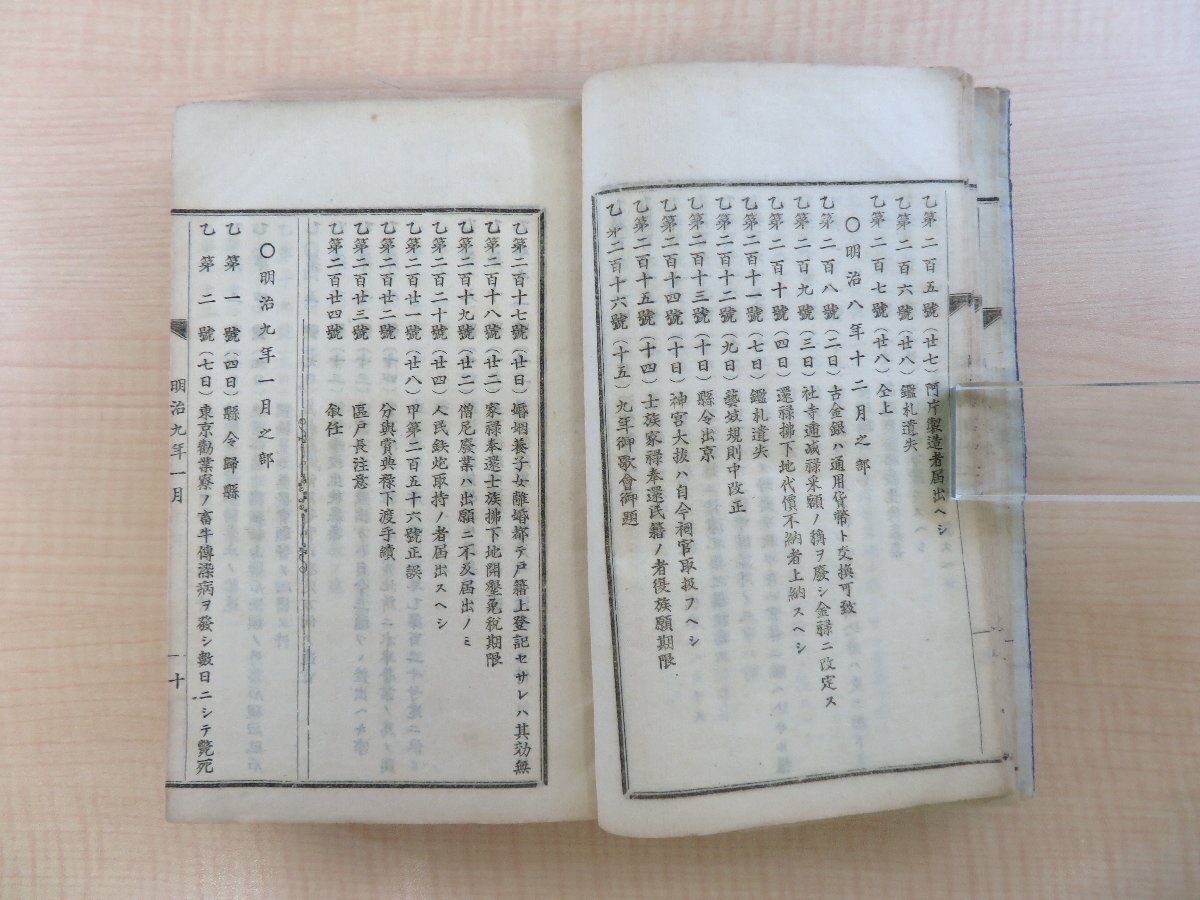 乙第二百五號（廿七）阿片製造者届出ヘシ
乙第二百六號（廿八）鑑札遺失
乙第二百七號（廿八）仝上
〇明治八年十二月之部
乙第二百八號（二日）古金銀ハ通用貨幣ト交換可致
乙第二百九號（三日）社寺逓减禄米額ノ稱ヲ廢シ金祿ニ改定ス
乙第二百十號（四日）還禄拂下地代價不納者上納スヘシ
乙第二百十一號（七日）鑑札遺失
乙第二百十二號（九日）藝妓規則中改正
乙第二百十三號（十日）縣令出京
乙第二百十四號（十日）神宮大抜ハ自今祠官取扱フヘシ
乙第二百十五號（十四）士族家禄奉還民籍ノ者復族願期限
乙第二百十六號（十五）九年御歌會御題
乙第二百十七號（廿日）婚姻養子女離婚都テ戸籍上登記セサレハ其効無
乙第二百十八號（廿二）家禄奉還士族拂下地開墾免税期限
乙第二百十九號（廿二）僧尼廢業ハ出願ニ不及届出ノミ
乙第二百二十號（廿四）人民鉄炮取持ノ者届出スヘシ
乙第二百廿一號（廿八）甲第二百五十六號正誤
乙第二百廿二號 分與賞典禄下渡手續
乙第二百廿三號 區戸長注意
乙第二百廿四號 叙任
〇明治九年一月之部
乙第一號（四日）縣令歸縣
乙第二號（七日）東京勸業寮ノ畜牛傳染病ヲ發シ數日ニシテ斃死
明治九年一月
十